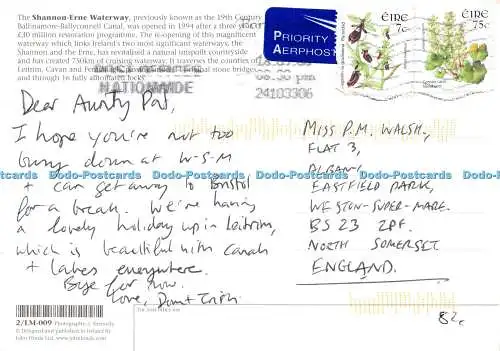 The Shannon-Erne Waterway, previously known as the 19th Century
Ballinamore-Ballyconnell Canal, was opened in 1994 after a three year
£30 million restoration programme. The re-opening of this magnificent
waterway which links Ireland's two most significant waterways, the
Shannon and the Erne, has revitalised a natural unspoilt countryside
and has created 750km of cruising waterway. It traverses the counties of
Leitrim, Cavan and
stone bridges
and through 16 fully
PRIORITY
AERPHOST
ÉIRE
7c
ÉIRE
75c
NATIONWIDE
06.30 pm
24103306
Dear Aunty Pat,
I hope you're not too
busy down at W-S-M
+ can get away to Bristol
for a break. We're having
a lovely holiday up in Leitrim,
which is beautiful with Canals
+ lakes everywhere.
Bye for now.
Love,
MISS P.M. WALSH,
FLAT 3,
ALBANY,
EASTFIELD PARK,
WESTON-SUPER-MARE.
BS23 2PF.
NORTH SOMERSET
ENGLAND.
Dodo-Postcards Dodo-Postcards Dodo-Postcards Dodo-Postcards Dodo-Postcards
2/LM-009
© Designed and published in Ireland by
John Hinde Ltd. www.johnhinde.com
82c